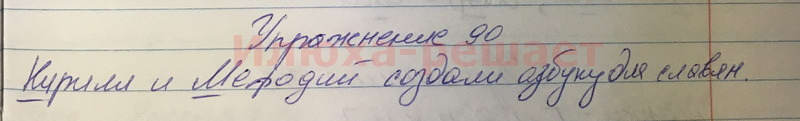 Упражнение 90
Илюха-решает
Кирилл и Мефодий создали азбуку для славян.